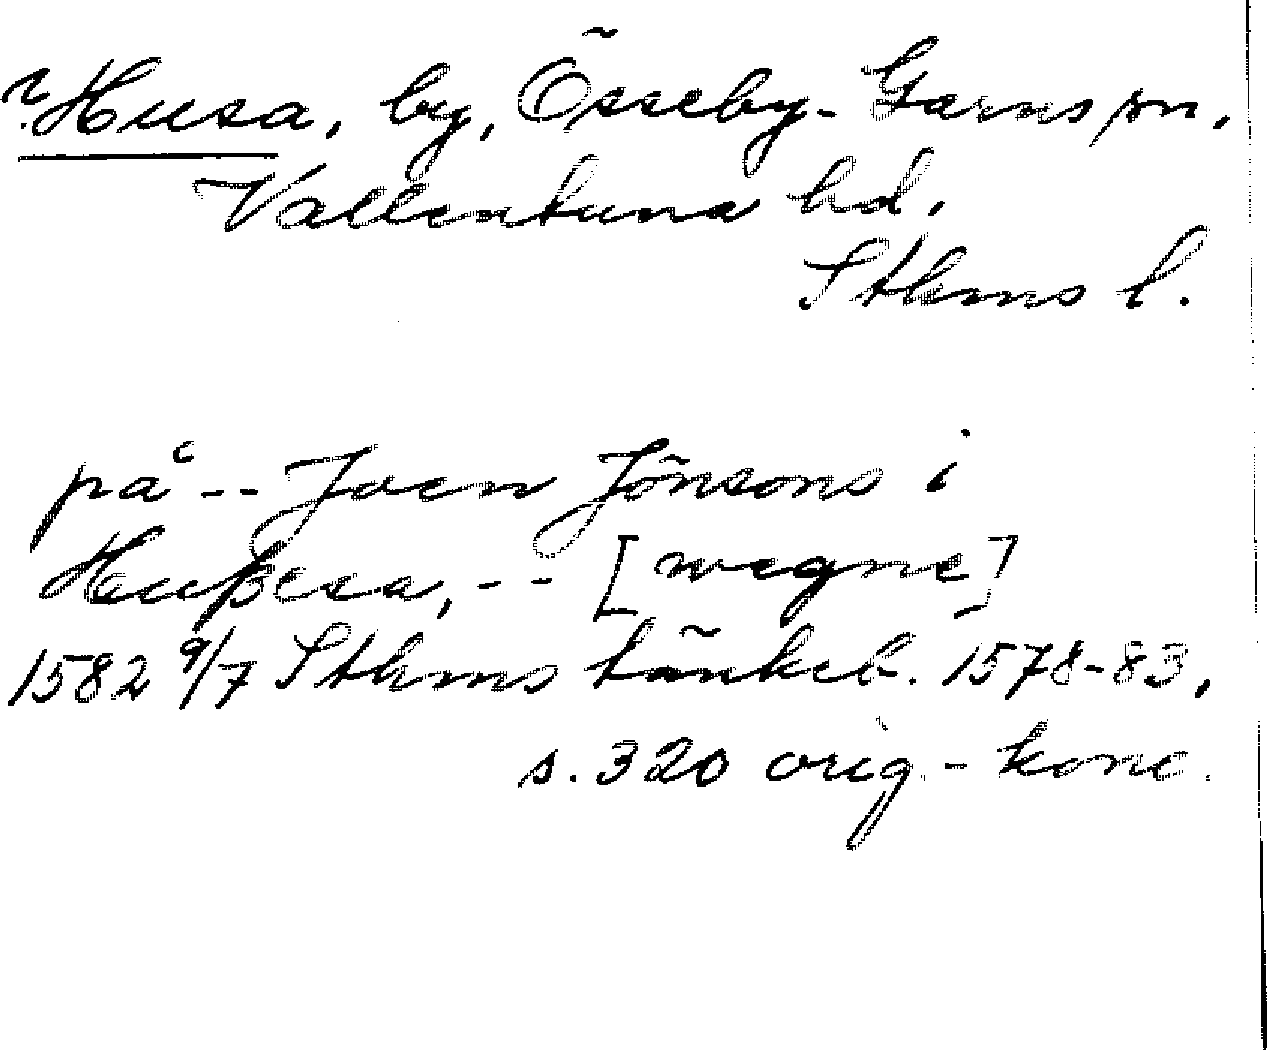 ? Husa, by, Össeby-Garns sn,
Vallentuna hd.
Sthms l.
på -- Joen Jönsons i
Hußesa, -- [wegne]
1582 9/7 Sthms tänkeb. 1578-83,
s. 320 orig.-konc.